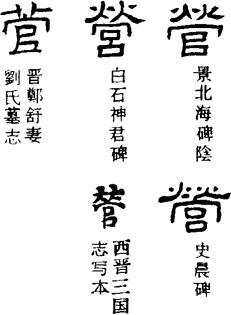 營
景北海碑陰
營
白石神君碑
菅
晋鄭舒妻
劉氏墓志
營
史晨碑
營
西晋三国
志写本